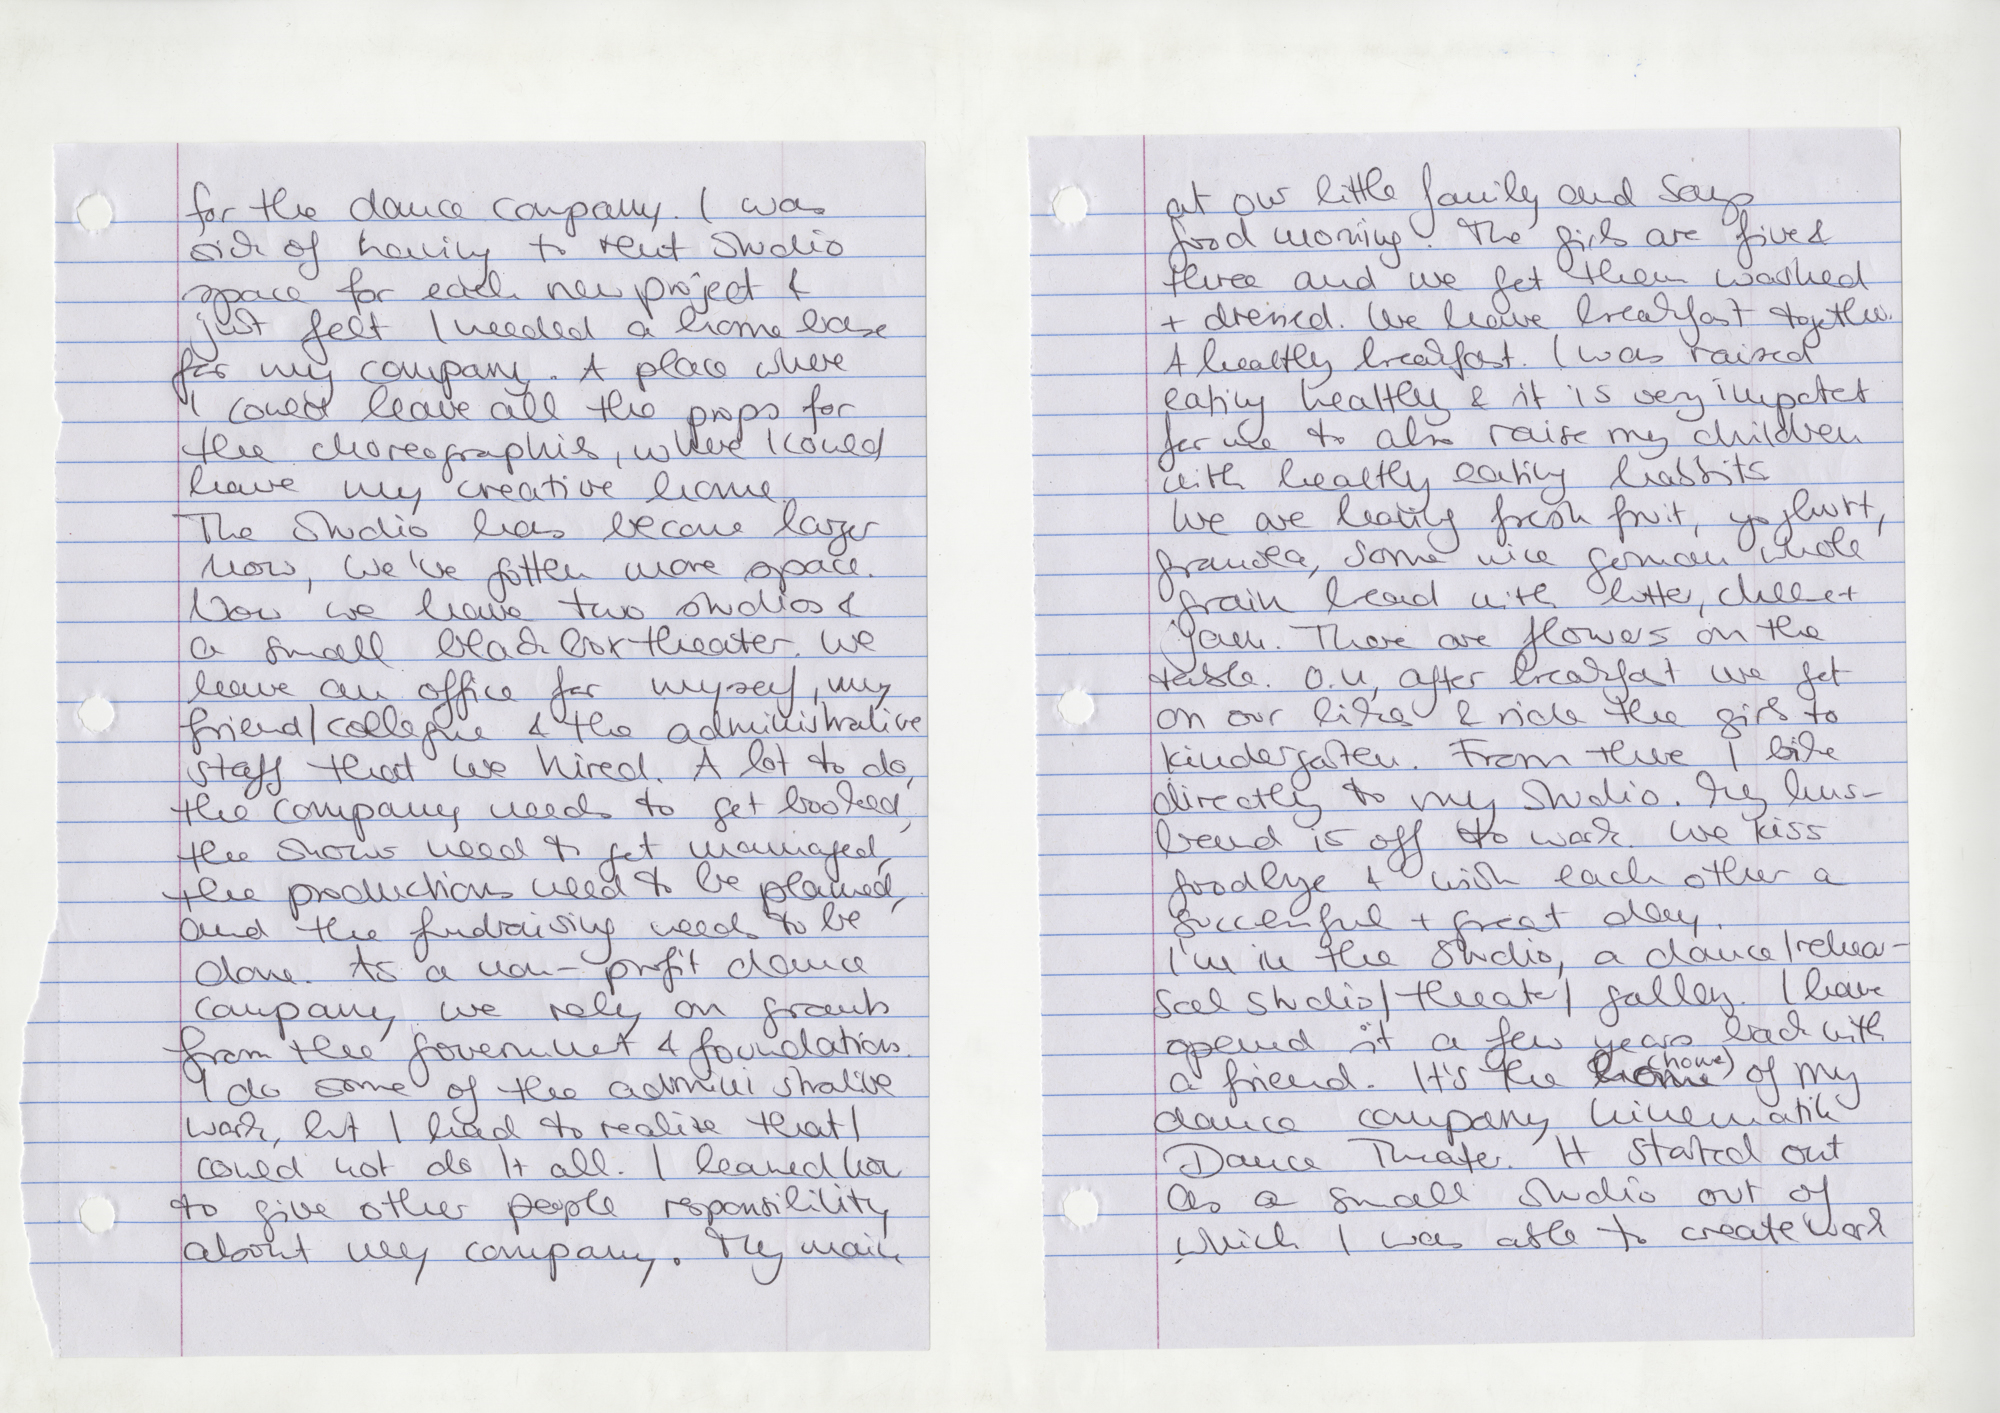 for the dance company. I was
sick of having to rent studio
space for each new project &
just felt I needed a home base
for my company. A place where
I could leave all the props for
the choreographies, where I could
have my creative home.
The studio has become larger
now, we've gotten more space.
Now we have two studios &
a small black box theater. We
have an office for myself, my
friend/collegue & the administrative
staff that we hired. A lot to do,
the company needs to get booked,
the shows need to get managed,
the productions need to be planned,
and the fundraising needs to be
done. As a non-profit dance
company, we rely on grants
from the government & foundations.
I do some of the administrative
work, but I had to realize that I
could not do it all. I learned how
to give other people responsibility
about my company. My main
at our little family and says
good morning! The girls are five &
three and we get them washed
+ dressed. We have breakfast together.
A healthy breakfast. I was raised
eating healthy & it is very importet
for me to also raise my children
with healthy eating habbits
We are having fresh fruit, yoghurt,
granola, some nice german whole
grain bread with butter, cheese +
jam. There are flowers on the
table. O.k, after breakfast we get
on our bikes & ride the girls to
kindergarten. From there I bike
directly to my studio. My hus-
band is off to work. We kiss
goodbye & wish each other a
successful + great day.
I'm in the studio, a dance/rehear-
sal studio/theater/gallery. I have
opened it a few years back with
a friend. It's the home (home) of my
dance company kinematik
Dance Theater. It started out
as a small studio out of
which I was able to create work